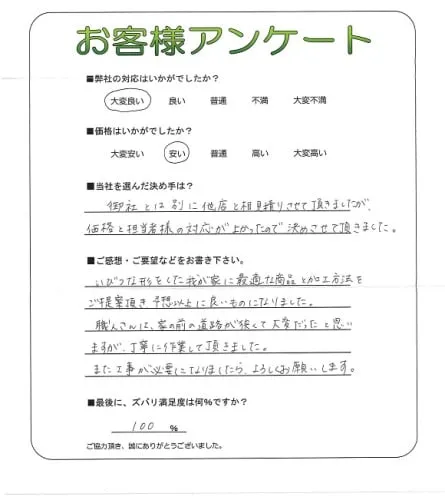 お客様アンケート
■弊社の対応はいかがでしたか?
大変良い 良い 普通 不満 大変不満
■価格はいかがでしたか?
大変安い 安い 普通 高い 大変高い
■当社を選んだ決め手は?
御社とは別に他店と相見積りさせて頂きましたが、
価格と担当者様の対応が良かったので決めさせて頂きました。
■ご感想・ご要望などをお書き下さい。
いびつな形をした我が家に最適な商品と加工方法を
ご提案頂き予想以上に良いものになりました。
職人さんは、家の前の道路が狭くて大変だったと思い
ますが、丁寧に作業して頂きました。
また工事が必要になりましたら、よろしくお願いします。
■最後に、ズバリ満足度は何%ですか?
100 %
ご協力頂き、誠にありがとうございました。